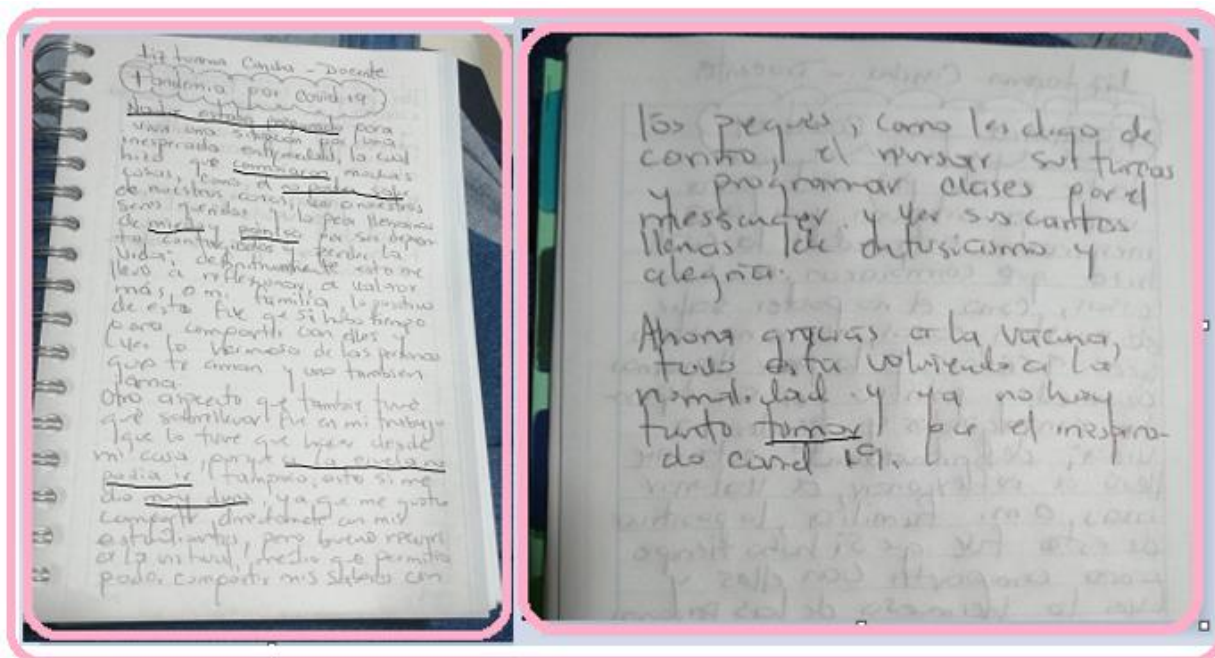 Liz Concha - Docente
Pandemia por Covid 19
Nadie estaba preparado para
vivir una situación por una
inesperada enfermedad, la cual
hizo que cambiaran muchas
cosas, como el no poder salir
de nuestras casas, a nuestros
seres queridos, y lo peor llenarnos
de miedo y por ser
contagiados y perder la
vida; definitivamente esto me
llevó a reflexionar, a valorar
más a mi familia lo positivo
de esto fue que si hubo tiempo
para compartir con ellos y
ver lo hermoso de las personas
que te aman y uno tambien
ama.
Otro aspecto que tambien tuve
que sobrellevar fue en mi trabajo
que lo tuve que hacer desde
mi casa, porque a la escuela no
podia ir tampoco, esto si me
dio muy duro, ya que me gusta
compartir directamente con mis
estudiantes, pero bueno recurri
a la internet, medio que permitia
poder compartir mis saberes con
los peques, como les digo de
cariño, el revisar sus tareas
y programar clases por el
messenger y ver sus caritas
llenas de entusiasmo y
alegria.
Ahora gracias a la vacuna,
todo esta volviendo a la
normalidad y ya no hay
tanto temor por el inespera-
do covid 19.